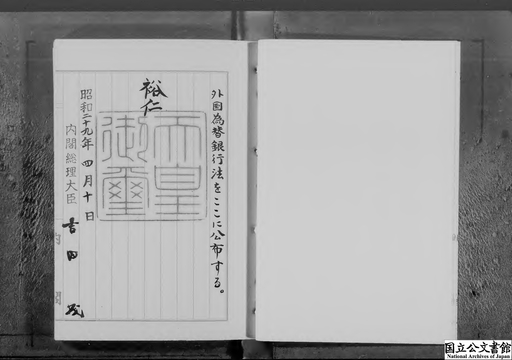 外国為替銀行法をここに公布する。
裕仁
天皇御璽
昭和二十九年四月十日
内閣総理大臣 吉田茂
国立公文書館
National Archives of Japan